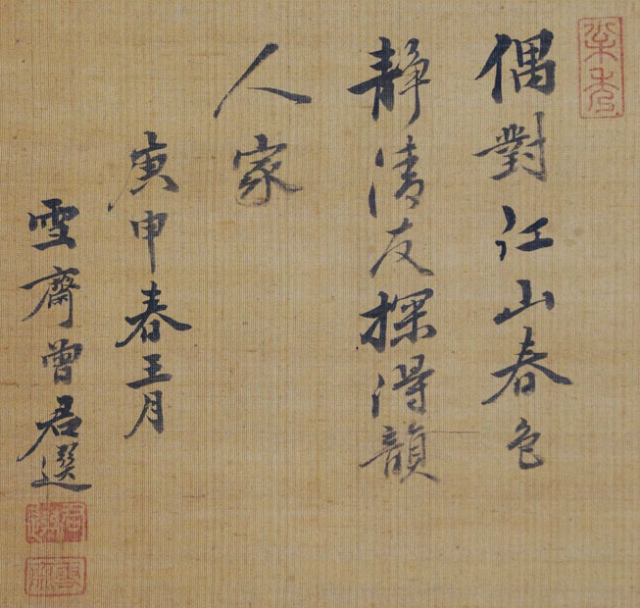 偶對江山春色
靜清友探得韻
人家
庚申春王月
雪齋曾君選